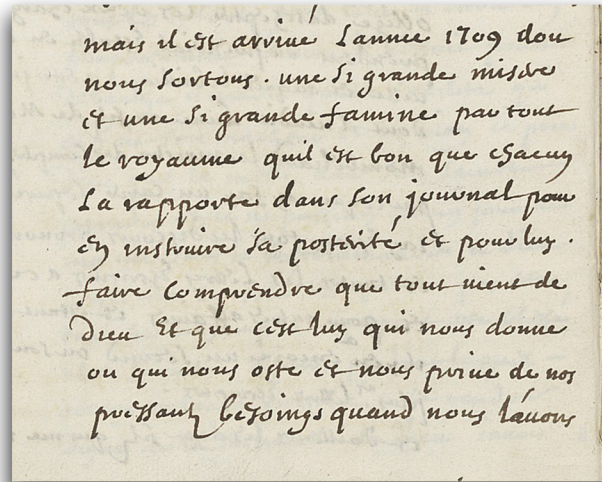 mais il est arrivé Lannee 1709 dou
nous sortons . une si grande misere
et une si grande famine partout
le royaume quil est bon que chacun
La rapporte dans son journal pour
en instruire sa posterité et pour luy .
faire comprendre que tout vient de
Dieu Et que cest luy qui nous donne
ou qui nous oste et nous prive de nos
pressants besoings quand nous lavons